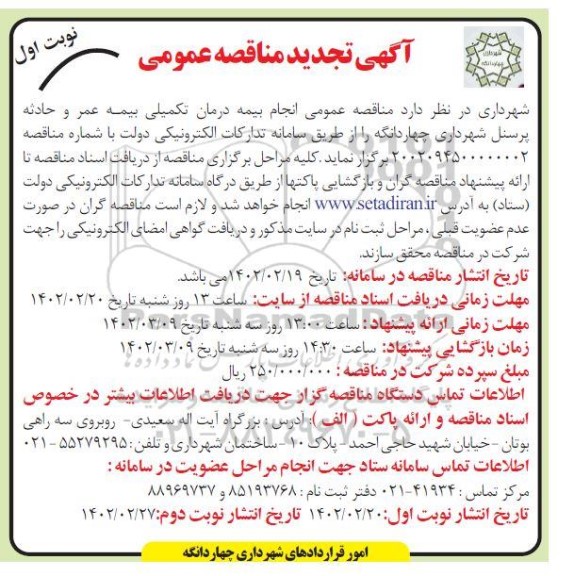 نوبت اول
آگهی تجدید مناقصه عمومی
شهرداری
چهاردانگه
شهرداری در نظر دارد مناقصه عمومی انجام بیمه درمان تکمیلی بیمه عمر و حادثه
پرسنل شهرداری چهاردانگه را از طریق سامانه تدارکات الکترونیکی دولت با شماره مناقصه
برگزار نماید .کلیه مراحل برگزاری مناقصه از دریافت اسناد مناقصه تا
ارائه پیشنهاد مناقصه گران و بازگشایی پاکتها از طریق درگاه سامانه تدارکات الکترونیکی دولت
(ستاد) به آدرس www.setadiran.ir انجام خواهد شد و لازم است مناقصه گران در صورت
عدم عضویت قبلی ، مراحل ثبت نام در سایت مذکور و دریافت گواهی امضای الکترونیکی را جهت
شرکت در مناقصه محقق سازند.
تاریخ انتشار مناقصه در سامانه: تاریخ ۱۴۰۲/۰۲/۱۹می باشد.
مهلت زمانی دریافت اسناد مناقصه از سایت: ساعت ۱۳ روز شنبه تاریخ ۱۴۰۲/۰۲/۲۰
مهلت زمانی ارائه پیشنهاد : ساعت ۱۳:۰۰ روز سه شنبه تاریخ ۱۴۰۲/۰۳/۰۹
زمان بازگشایی پیشنهاد: ساعت ۱۴:۳۰ روز سه شنبه تاریخ ۱۴۰۲/۰۳/۰۹
مبلغ سپرده شرکت در مناقصه : ۲۵۰/۰۰۰/۰۰۰ ریال
اطلاعات تماس دستگاه مناقصه گزار جهت دریافت اطلاعات بیشتر در خصوص
اسناد مناقصه و ارائه پاکت ( الف ): آدرس : بزرگراه آیت اله سعیدی- روبروی سه راهی
بوتان -خیابان شهید حاجی احمد - پلاک ۱۰ -ساختمان شهرداری و تلفن : ۵۵۲۷۹۲۹۵ - ۰۲۱
اطلاعات تماس سامانه ستاد جهت انجام مراحل عضویت در سامانه :
مرکز تماس : ۴۱۹۳۴-۰۲۱ دفتر ثبت نام : ۸۵۱۹۳۷۶۸ و ۸۸۹۶۹۷۳۷
تاریخ انتشار نوبت اول:۱۴۰۲/۰۲/۲۰ تاریخ انتشار نوبت دوم:۱۴۰۲/۰۲/۲۷
امور قراردادهای شهرداری چهاردانگه
ParsNamadData